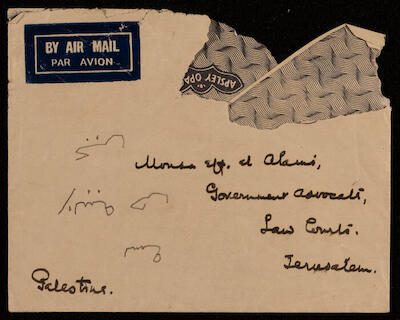 BY AIR MAIL
PAR AVION
APSLEY OPA
Mousa eff. el Alami,
Government Advocate,
Law Courts.
Jerusalem.
Palestine.